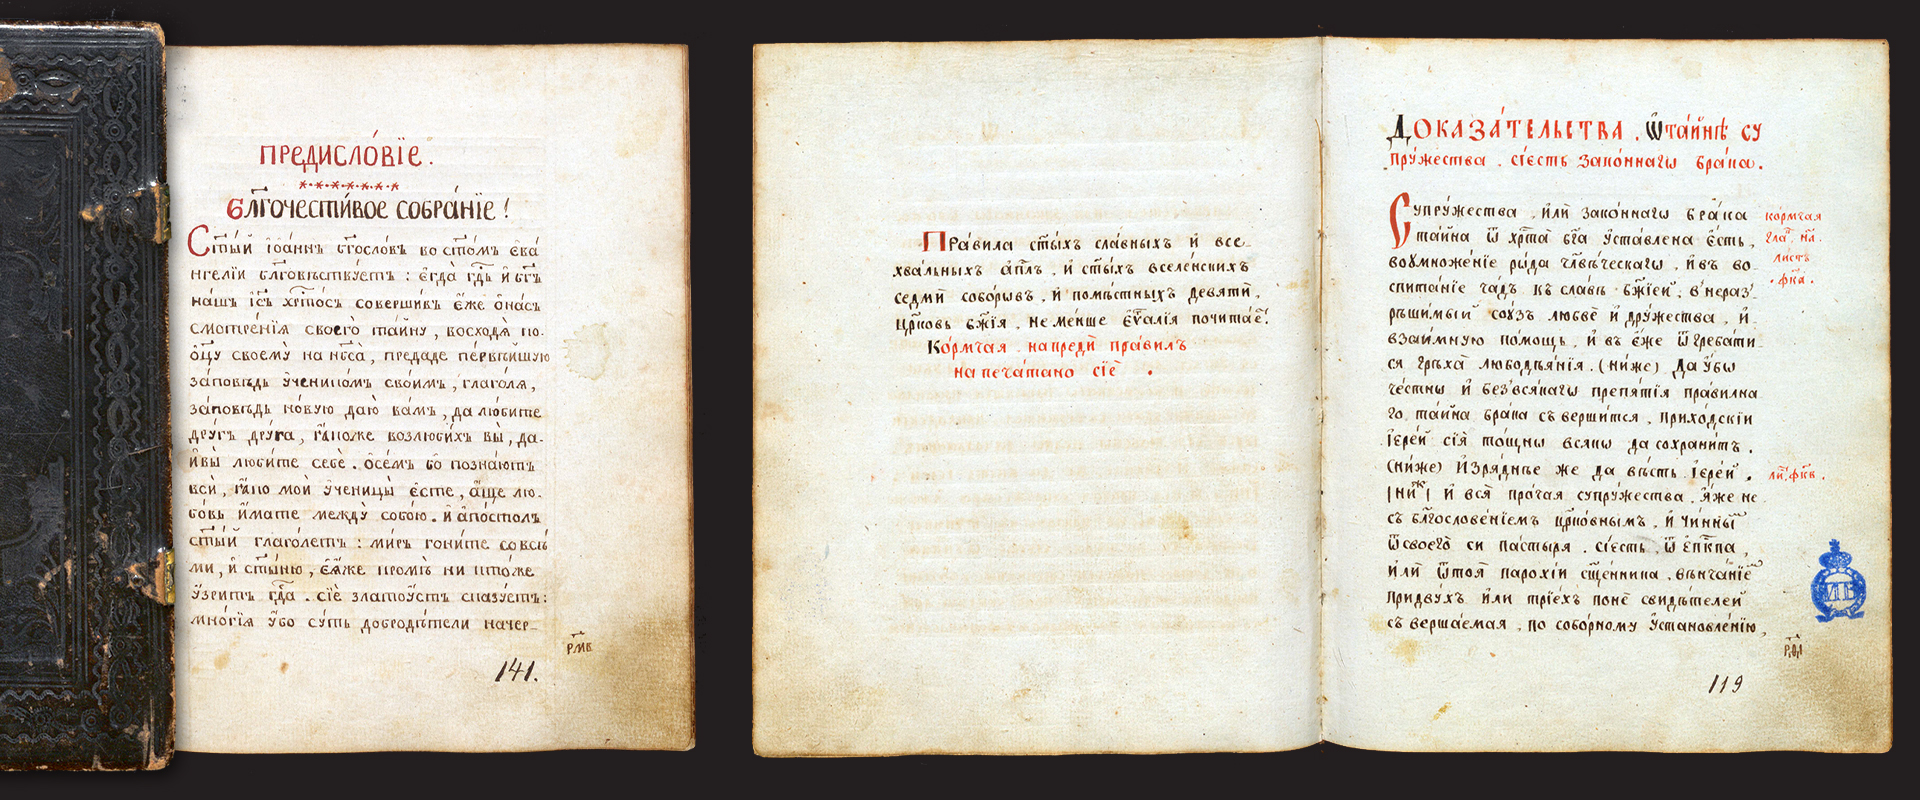 ПРЕДИСЛО́ВЇЕ.
Бл҃гочести́вое собра́нїе!
Ст҃ый їѡа́ннъ бг҃осло́въ во ст҃о́мъ є҆ва́
нгелїи бл҃говѣствꙋетъ : є҆гда̀ гд҃ь и҆ бг҃ъ
на́шъ їс҃ъ хрⷭ҇то́съ соверши́въ є҆́же ѡ҆на́съ
смотре́нїѧ своегѡ̀ та́йнꙋ, восходѧ̀ ко-
ѻ҆ц҃ꙋ̀ своемꙋ̀ на нб҃са̀, предадѐ пе́рвѣйшꙋю
за́повѣдь ᲂу҆ченикѡ́мъ свои̑мъ, глаго́лѧ,
за́повѣдь но́вꙋю даю̀ ва́мъ, да лю́бите
дрꙋ́гъ дрꙋ́га, ꙗ҆́коже возлюби́хъ вы̀, да-
и҆ вы̀ лю́бите себѐ. ѡ҆се́мъ бо позна́ютъ
всѝ, ꙗ҆́кѡ моѝ ᲂу҆ченицы̀ є҆стѐ, а҆́ще лю-
бо́вь и҆́мате междꙋ̀ собо́ю. и҆ а҆по́столъ
ст҃ы́й глаго́летъ : ми́ръ гони́те со всѣ́
ми, и҆ ст҃ы́ню, є҆ѧ́же кромѣ̀ ни кто́же
ᲂу҆́зритъ гдⷭ҇а. сїѐ златоᲂу́стъ ска́зꙋетъ:
мнѡ́гїѧ ᲂу҆́бо сꙋ́ть добродѣ́тели начер-
рмв
141.
Пра́вила ст҃ы́хъ сла́вныхъ и҆ все-
хва́льныхъ а҆пⷭ҇лъ, и҆ ст҃ы́хъ вселе́нскихъ
седмѝ собо́рѡвъ, и҆ помѣ́стныхъ девѧтѝ,
цр҃ковь бж҃їѧ, не ме́нше є҆ѵⷢ҇а́лїѧ почита́е.
Ко́рмчаѧ напредѝ пра́вилъ
напеча́тано сїѐ.
Доказа́тельства. ѿ та́йнѣ сꙋ
прꙋ́жества. сїе́сть зако́ннагѡ бра́ка.
Сꙋпрꙋ́жества, и҆лѝ зако́ннагѡ бра́ка
та́йна ѿ хрⷭ҇та̀ бг҃а ᲂу҆ста́влена є҆́сть,
воᲂумноже́нїе ро́да чл҃вѣ́ческагѡ, и҆ въ во-
спита́нїе ча́дъ къ сла́вѣ бж҃їей, в'нераз̾-
рѣши́мый сою́зъ любвѐ и҆ дрꙋ́жества, и҆-
взаи́мнꙋю по́мощь, и҆ въ є҆́же ѿгреба́ти-
сѧ грѣха̀ любодѣѧ́нїѧ. (ни́же) Да ᲂу҆́бѡ
че́стны и҆ без̾всѧ́кагѡ препѧ́тїѧ пра́вилна
го. та́йна бра́ка съверши́тсѧ, прихо́дскїи
їере́й сїѧ̑ то́щны всѧ́кѡ да сохрани́тъ.
(ни́же) И҆зрѧ́днѣе же да вѣ́сть їере́й,
(ниⷤ) и҆ всѧ̑ про́чаѧ сꙋпрꙋ́жества. ꙗ҆́же не
съ бл҃гослове́нїемъ цр҃ко́внымъ, и҆ чи́нны
ѿ своегѡ̀ си па́стырѧ. сїе́сть. ѿ є҆пⷭ҇кпа,
и҆лѝ ѿ тоѧ̀ паро́хїи сщ҃е́нника, вѣнча́нїе
придвꙋ́хъ и҆лѝ трїе́хъ понѐ свидѣ́телей
съверша́емаѧ, по собо́рномꙋ ᲂу҆становле́нїю,
ко́рмчаѧ
гла҃. н҃а.
ли́стъ
. фк҃а.
ли́ⷭ. фк҃в.
ИПБ
119